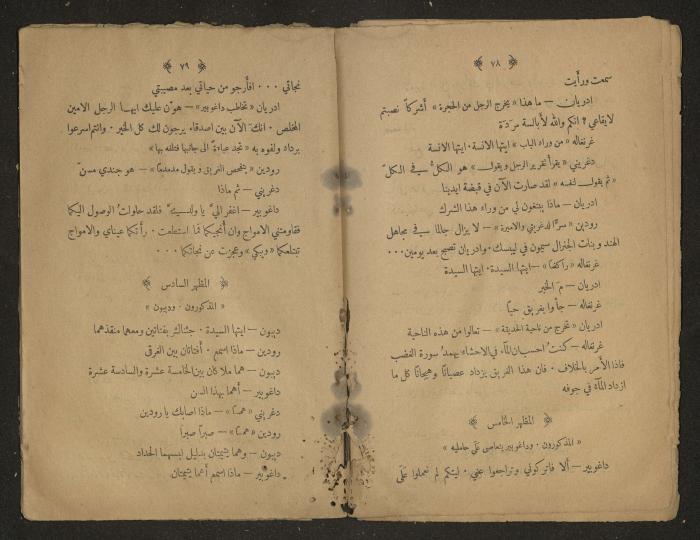 ﴿ ٧٨ ﴾
سمعت ورأيت
ادريان — ما هذا « يخرج الرجل من الحجرة » أشركاً نصبتم
لايقاعي ؟ انكم والله لأبالسة مردَة
غرنغاله « من وراء الباب » ايتها الانسة . ايتها الانسة
دغريني « يقرأ تقرير الرجل ويقول » هو الكلُّ في الكلّ
« ثم يقول لنفسه » لقد صارت الآن في قبضة ايدينا
ادريان — ماذا يبتغون لي من وراء هذا الشرك
رودين « سرًّا لدغريني والاميرة » — لا يزال جالما في مجاهل
الهند وبنات الجنرال سيمون في ليبسك . وادريان تصبح بعد يومين . . .
غرنغاله « راكضاً » — ايتها السيدة . ايتها السيدة
ادريان — مَ الخبر
غرنغاله — جأوا بغريق حيًّا
ادريان « تخرج من ناحية الحديقة » — تعالوا من هذه الناحية
غرنغاله — كنتُ احسب ان المآء في الاحشاء يهمد سورة الغضب
فاذا الأمر بالخلاف . فان هذا الغريق يزداد عصياناً وهيجاناً كل ما
ازداد المآء في جوفه
﴿ المظهر الخامس ﴾
« المذكورون . وداغوبير يتعاصى على حامليه »
داغوبير — ألا فاتركوني وتراجعوا عني . ليتكم لم تحملوا عليَّ
﴿ ٧٩ ﴾
نجاتي . . . افأرجو من حياتي بعد مصيبتي
ادريان « تخاطب داغوبير » — هوّن عليك ايها الرجل الامين
المخلص . انك الآن بين اصدقاء يرجون لك كل الخير . وانتم اسرعوا
برداء ولفوه به « تجد عباءة الى جانبها فتلفه بها »
رودين « يتفحص الغريق ويقول مدمدماً » — هو جندي مسنّ
دغريني — ثم ماذا
داغوبير — اغفر اليَّ يا ولديَّ فلقد حاولتُ الوصول اليكما
فقاومتني الامواج وان أُنجيكما فما استطعت . رأتكما عيناي والامواج
تبتلعكما « ويبكي » وعجزت عن نجاتكما . . .
﴿ المظهر السادس ﴾
« المذكورون . وديبون »
ديبون — ايتها السيدة . جئناك بفتاتين ومعهما منقذهما
رودين — ماذا اسمع . أفتاتان بين الغرقى
ديبون — هما ملاكان بين الخامسة عشرة والسادسة عشرة
داغوبير — أهما بهذا السن
دغريني « همساً » — ماذا اصابك يا رودين
رودين « همساً » — صبراً صبرا
ديبون — وهما يتيمتان بدليل لبسهما الحداد
داغوبير — ماذا اسمع أهما يتيمتان